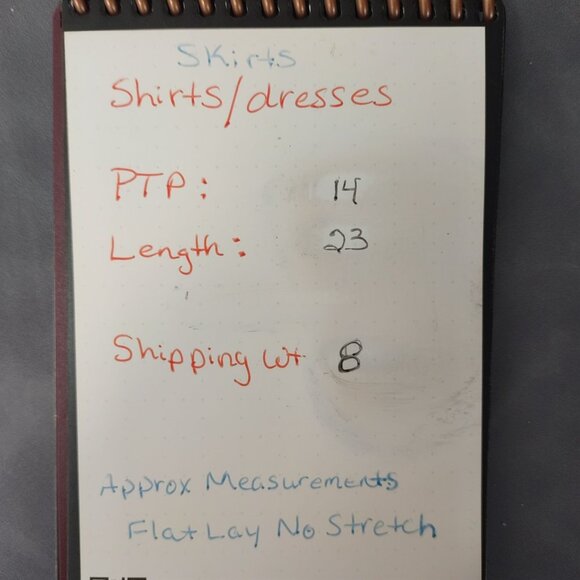 Skirts
Shirts/dresses
PTP: 14
Length: 23
Shipping wt 8
Approx Measurements
Flat Lay No Stretch